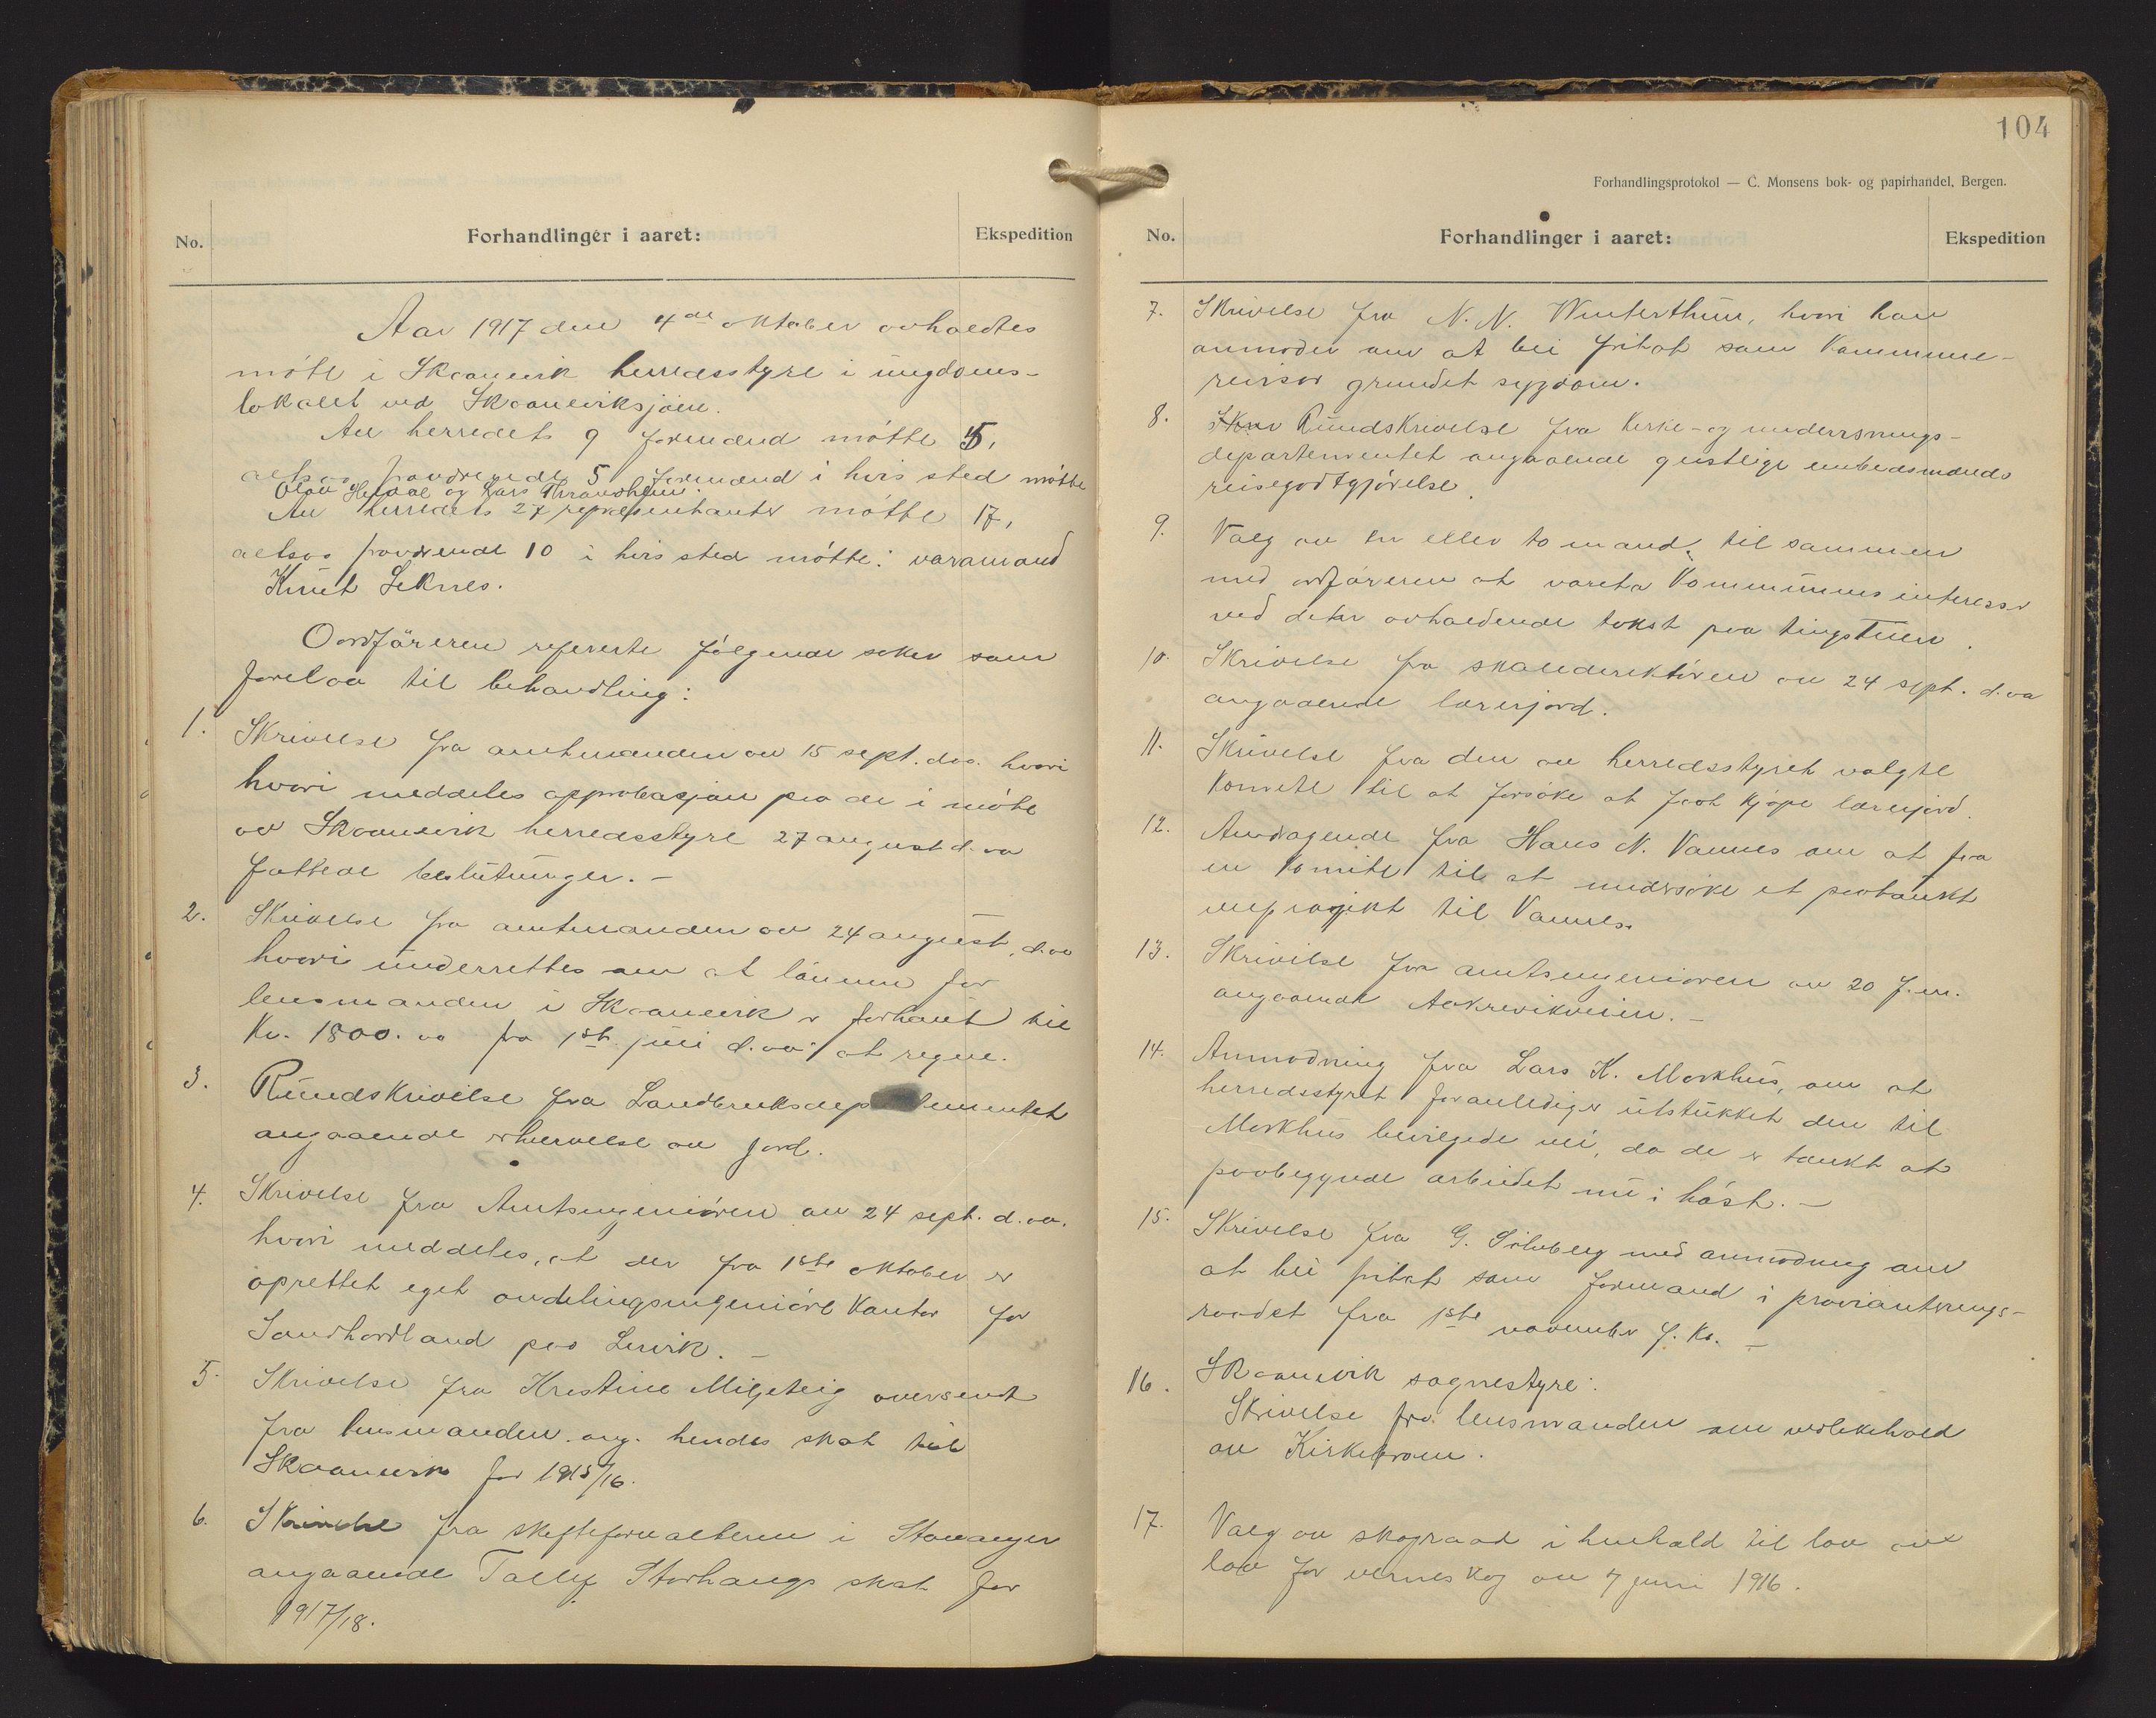 No.
Forhandlinger i aaret:
Ekspedition
Aar 1917 den 4de oktober avholdtes
møte i Skaanevik herredsstyre i ungdoms-
lokalet ved Skaaneviksjøen.
Av herredets 9 formænd møtte 5,
altsaa fraværende 5 formænd i hvis sted møtte
Olav Helvik og Lars Thrandheim.
Av herredets 27 repræsentanter møtte 17,
altsaa fraværende 10 i hvis sted møtte: varamand
Knut Leknes.
Oordføreren refererte følgende saker som
forelaa til behandling:
1. Skrivelse fra amtmanden av 15 sept. d.aa. hvori
hvori meddeles approbasjon paa de i møte
av Skaanevik herredsstyre 27 august d.aa
fattede beslutninger. –
2. Skrivelse fra amtmanden av 24 august, d.aa
hvori underrettes om at lønnen for
lensmanden i Skaanevik er forhøiet til
Kr. 1800.00 fra 1ste juli d.aa at regne.
3. Rundskrivelse fra Landbruksdepartementet
angaaende erhvervelse av jord.
4. Skrivelse fra Amtsingeniøren av 24 sept. d.aa.
hvori meddeles, at der fra 1ste oktober er
oprettet eget avdelingsingeniørkontor for
Søndhordland paa Lervik. –
5. Skrivelse fra Kristine Miljeteig oversendt
fra lensmanden ang. hendes skat til
Skaanevik for 1915/16.
6. Skrivelse fra skifteforvalteren i Stavanger
angaaende Tallef Storhaugs skat for
1917/18.
104
Forhandlingsprotokol — C. Monsens bok- og papirhandel, Bergen.
No.
Forhandlinger i aaret:
Ekspedition
7. Skrivelse fra N. N. Winterthun, hvori han
anmoder om at bli fritat som kommune-
revisor grundet sygdom.
8. Skriv Rundskrivelse fra Kirke- og undervisnings-
departementet angaaende geistlige embedsmænds
reisegodtgjørelse.
9. Valg av en eller to mænd til sammen
med ordføreren at vareta kommunens interesser
ved den avholdende takst paa tingstuen.
10. Skrivelse fra skoledirektøren av 24 sept. d.aa
angaaende lærerjord.
11. Skrivelse fra den av herredsstyret valgte
komite til at forsøke at faat kjøpe lærerjord.
12. Andragende fra Hans N. Vannes om at faa
en komite til at undersøke et paatænkt
veiprosjekt til Vannes.
13. Skrivelse fra amtsingeniøren av 20 f.m.
angaaende Aakrevikveien. –
14. Anmodning fra Lars K. Markhus, om at
herredsstyret foranlediger utstukket den til
Markhus bevilgede vei, da de er tænkt at
paabegynde arbeidet nu i høst. –
15. Skrivelse fra G. Silseberg med anmodning om
at bli fritat som formand i provianterings-
raadet fra 1ste november f. Kr. –
16. Skaanevik sognestyre:
Skrivelse fra lensmanden om vedlikehold
av Kirkebroen.
17. Valg av skograad i henhold til lov av
lov for verneskog av 7 juni 1916.